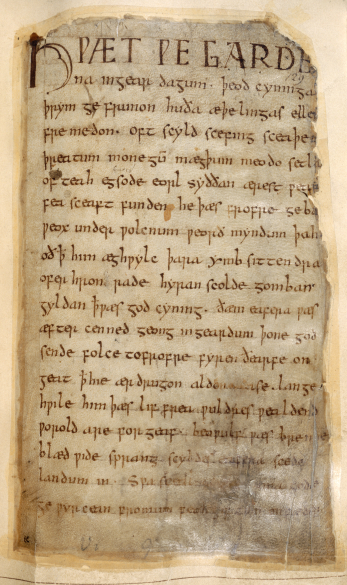 HǷÆT ǷE GARDE
na ingear dagum. þeod cyninga
þrym ge frunon huða æþelingas elle
fremedon. oft scyld scefing sceaþe
þreatum monegū mægþum meodo setla
of teah egsode eorl syððan ærest ƿear
fea sceaft funden he þæs frofre geba
ƿeox under ƿolcnum ƿeorð myndum þah
oð ꝥ him æghƿylc þara ymb sittendra
ofer hron rade hyran scolde gomban
gyldan ꝥ ƿæs god cyning. ðæm eafera ƿæs
æfter cenned geong ingeardum þone god
sende folce tofrofre fyren ðearfe on
geat ꝥ hie ær drugon aldor ase. lange
hƿile him þæs lif frea ƿuldres ƿealdend
ƿorold are for geaf. beoƿulf ƿæs breme
blæd ƿide sprang scyldes eafera scede
landum in. Sƿa sceal guma gode
ge ƿyrcean fromum feoh giftum on